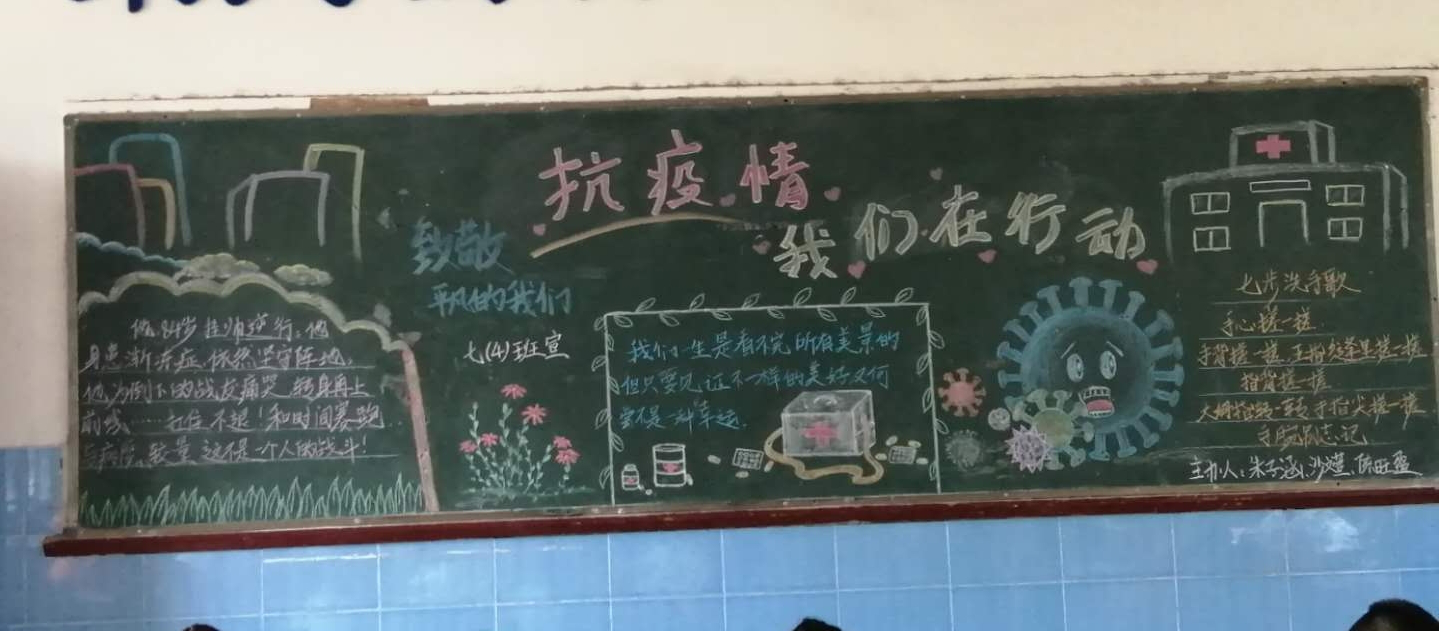 抗疫情
我们在行动
致敬
平凡的我们
七(4)班宣
他，84岁挂帅逆行，他
身患渐冻症，依然坚守阵地，
他为倒下的战友痛哭，转身再上
前线……扛住 不起！和时间赛跑
与病 较量 这不是一个人的战斗！
我们一生是看不完所有美景的
但只要见证不一样的美好又何
尝不是一种幸运。
七步洗手歌
手心搓一搓
手背搓一搓 手指 搓一搓
指背搓一搓
大拇指转一转 手指尖搓一搓
手腕 忘记
主办人：朱 涵